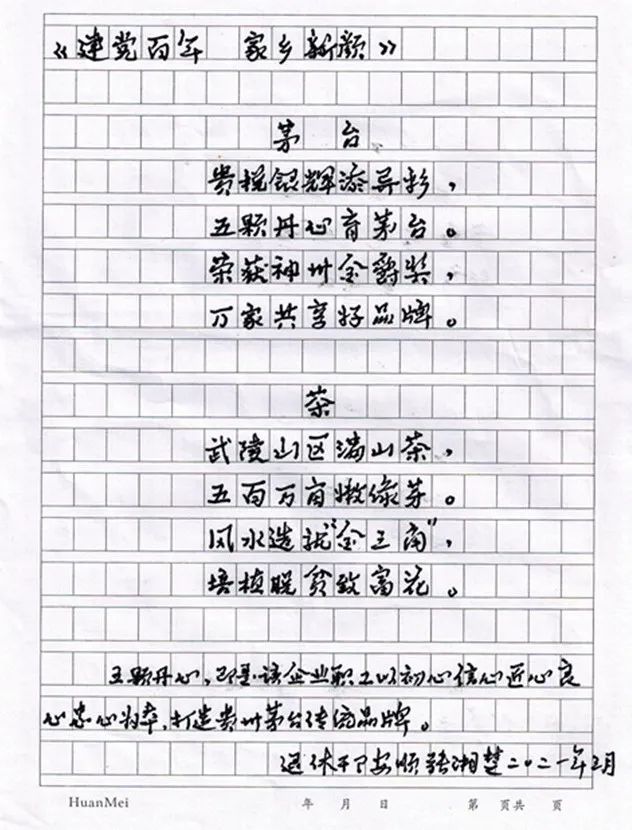 《建党百年 家乡新颜》
茅台
贵税银辉添异彩，
五颗丹心育茅台。
荣获神州金爵奖，
万家共享好品牌。
茶
武陵山区满山茶，
五百万亩嫩绿芽。
风水造就"金三角"，
培植脱贫致富花。
五颗丹心，即是该企业职工以初心信心匠心良
心忠心为本，打造贵州茅台传统品牌。
退休干 安顺 湘楚二〇二一年三月
HuanMei 年 月 日 第 页共 页